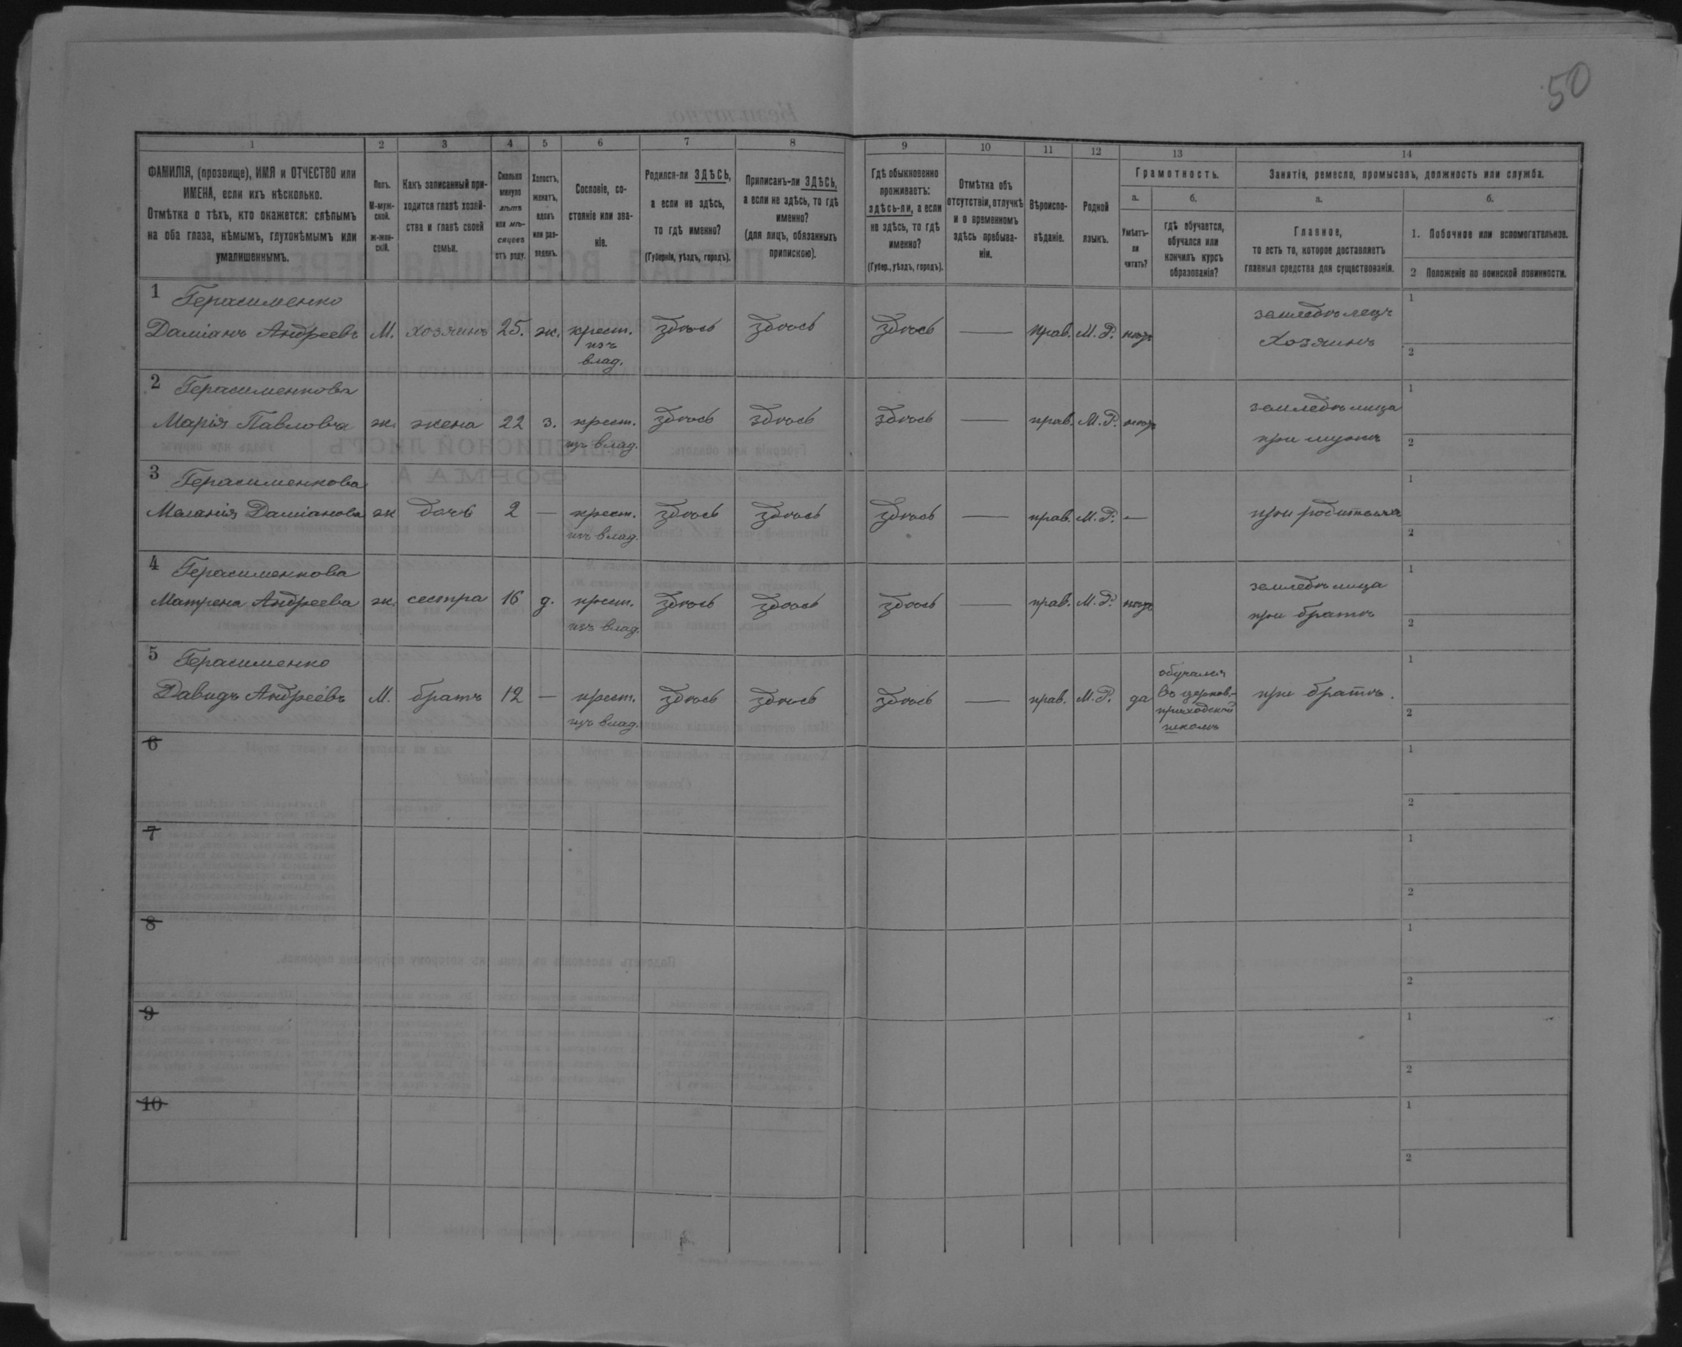 50
1 2 3 4 5 6 7 8 9 10 11 12 13 14
ФАМИЛІЯ, (прозвище), ИМЯ и ОТЧЕСТВО или
ИМЕНА, если ихъ нѣсколько.
Отмѣтка о тѣхъ, кто окажется: слѣпымъ
на оба глаза, нѣмымъ, глухонѣмымъ или
умалишеннымъ.
Полъ.
М-муж-
ской.
ж-жен-
скій.
Какъ записанный при-
ходится главѣ хозяй-
ства и главѣ своей
семьи.
Сколько
минуло
лѣтъ
или мѣ-
сяцевъ
отъ роду.
Холостъ,
женатъ,
вдовъ
или раз-
веденъ.
Сословіе, со-
стояніе или зва-
ніе.
Родился-ли ЗДѢСЬ,
а если не здѣсь,
то гдѣ именно?
(Губернія, уѣздъ, городъ).
Приписанъ-ли ЗДѢСЬ,
а если не здѣсь, то гдѣ
именно?
(для лицъ, обязанныхъ
припискою).
Гдѣ обыкновенно
проживаетъ:
здѣсь-ли, а если
не здѣсь, то гдѣ
именно?
(Губер., уѣздъ, городъ).
Отмѣтка объ
отсутствіи, отлучкѣ
и о временномъ
здѣсь пребыва-
ніи.
Вѣроиспо-
вѣданіе.
Родной
языкъ.
Грамотность.
а.
Умѣетъ-
ли
читать?
б.
гдѣ обучается,
обучался или
кончилъ курсъ
образованія?
Занятіе, ремесло, промыселъ, должность или служба.
а.
Главное,
то есть то, которое доставляетъ
главныя средства для существованія.
б.
1. Побочное или вспомогательное.
2 Положеніе по воинской повинности.
1 Герасименко
Даміанъ Андреевъ М. хозяинъ 25. ж. крест. здѣсь здѣсь здѣсь — прав. М. Р. нѣтъ
изъ
влад.
земледѣлецъ
Хозяинъ
1
2
2 Герасименкова
Марія Павловна ж. жена 22 з. крест. здѣсь здѣсь здѣсь — прав. М. Р. нѣтъ
изъ влад.
земледѣлица
при мужѣ
1
2
3 Герасименкова
Меланія Даміанова ж дочь 2 — крест. здѣсь здѣсь здѣсь — прав. М. Р. —
изъ влад.
при родителяхъ
1
2
4 Герасименкова
Матрена Андреева ж. сестра 16 д. крест. здѣсь здѣсь здѣсь — прав. М. Р. нѣтъ
изъ влад.
земледѣлица
при братѣ
1
2
5 Герасименко
Давидъ Андреевъ М. братъ 12 — крест. здѣсь здѣсь здѣсь — прав. М. Р. да
изъ влад.
обучался
въ церков.-
приходской
школѣ
при братѣ.
1
2
6
1
2
7
1
2
8
1
2
9
1
2
10
1
2